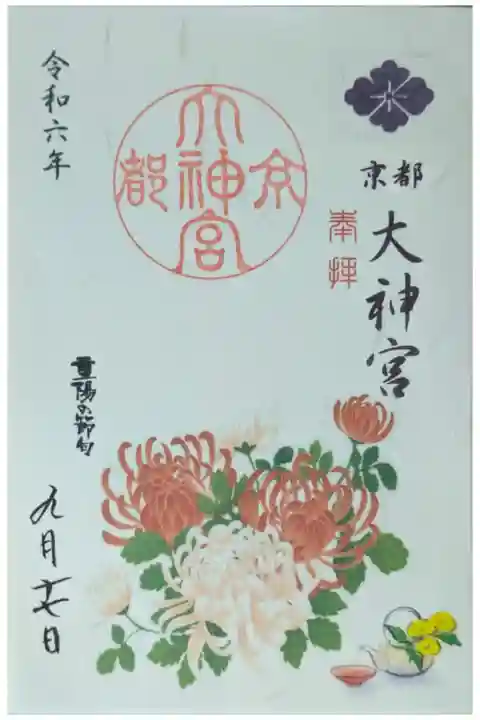 京都
大神宮
奉拝
大神宮
京都
令和六年
重陽の節句
九月十七日